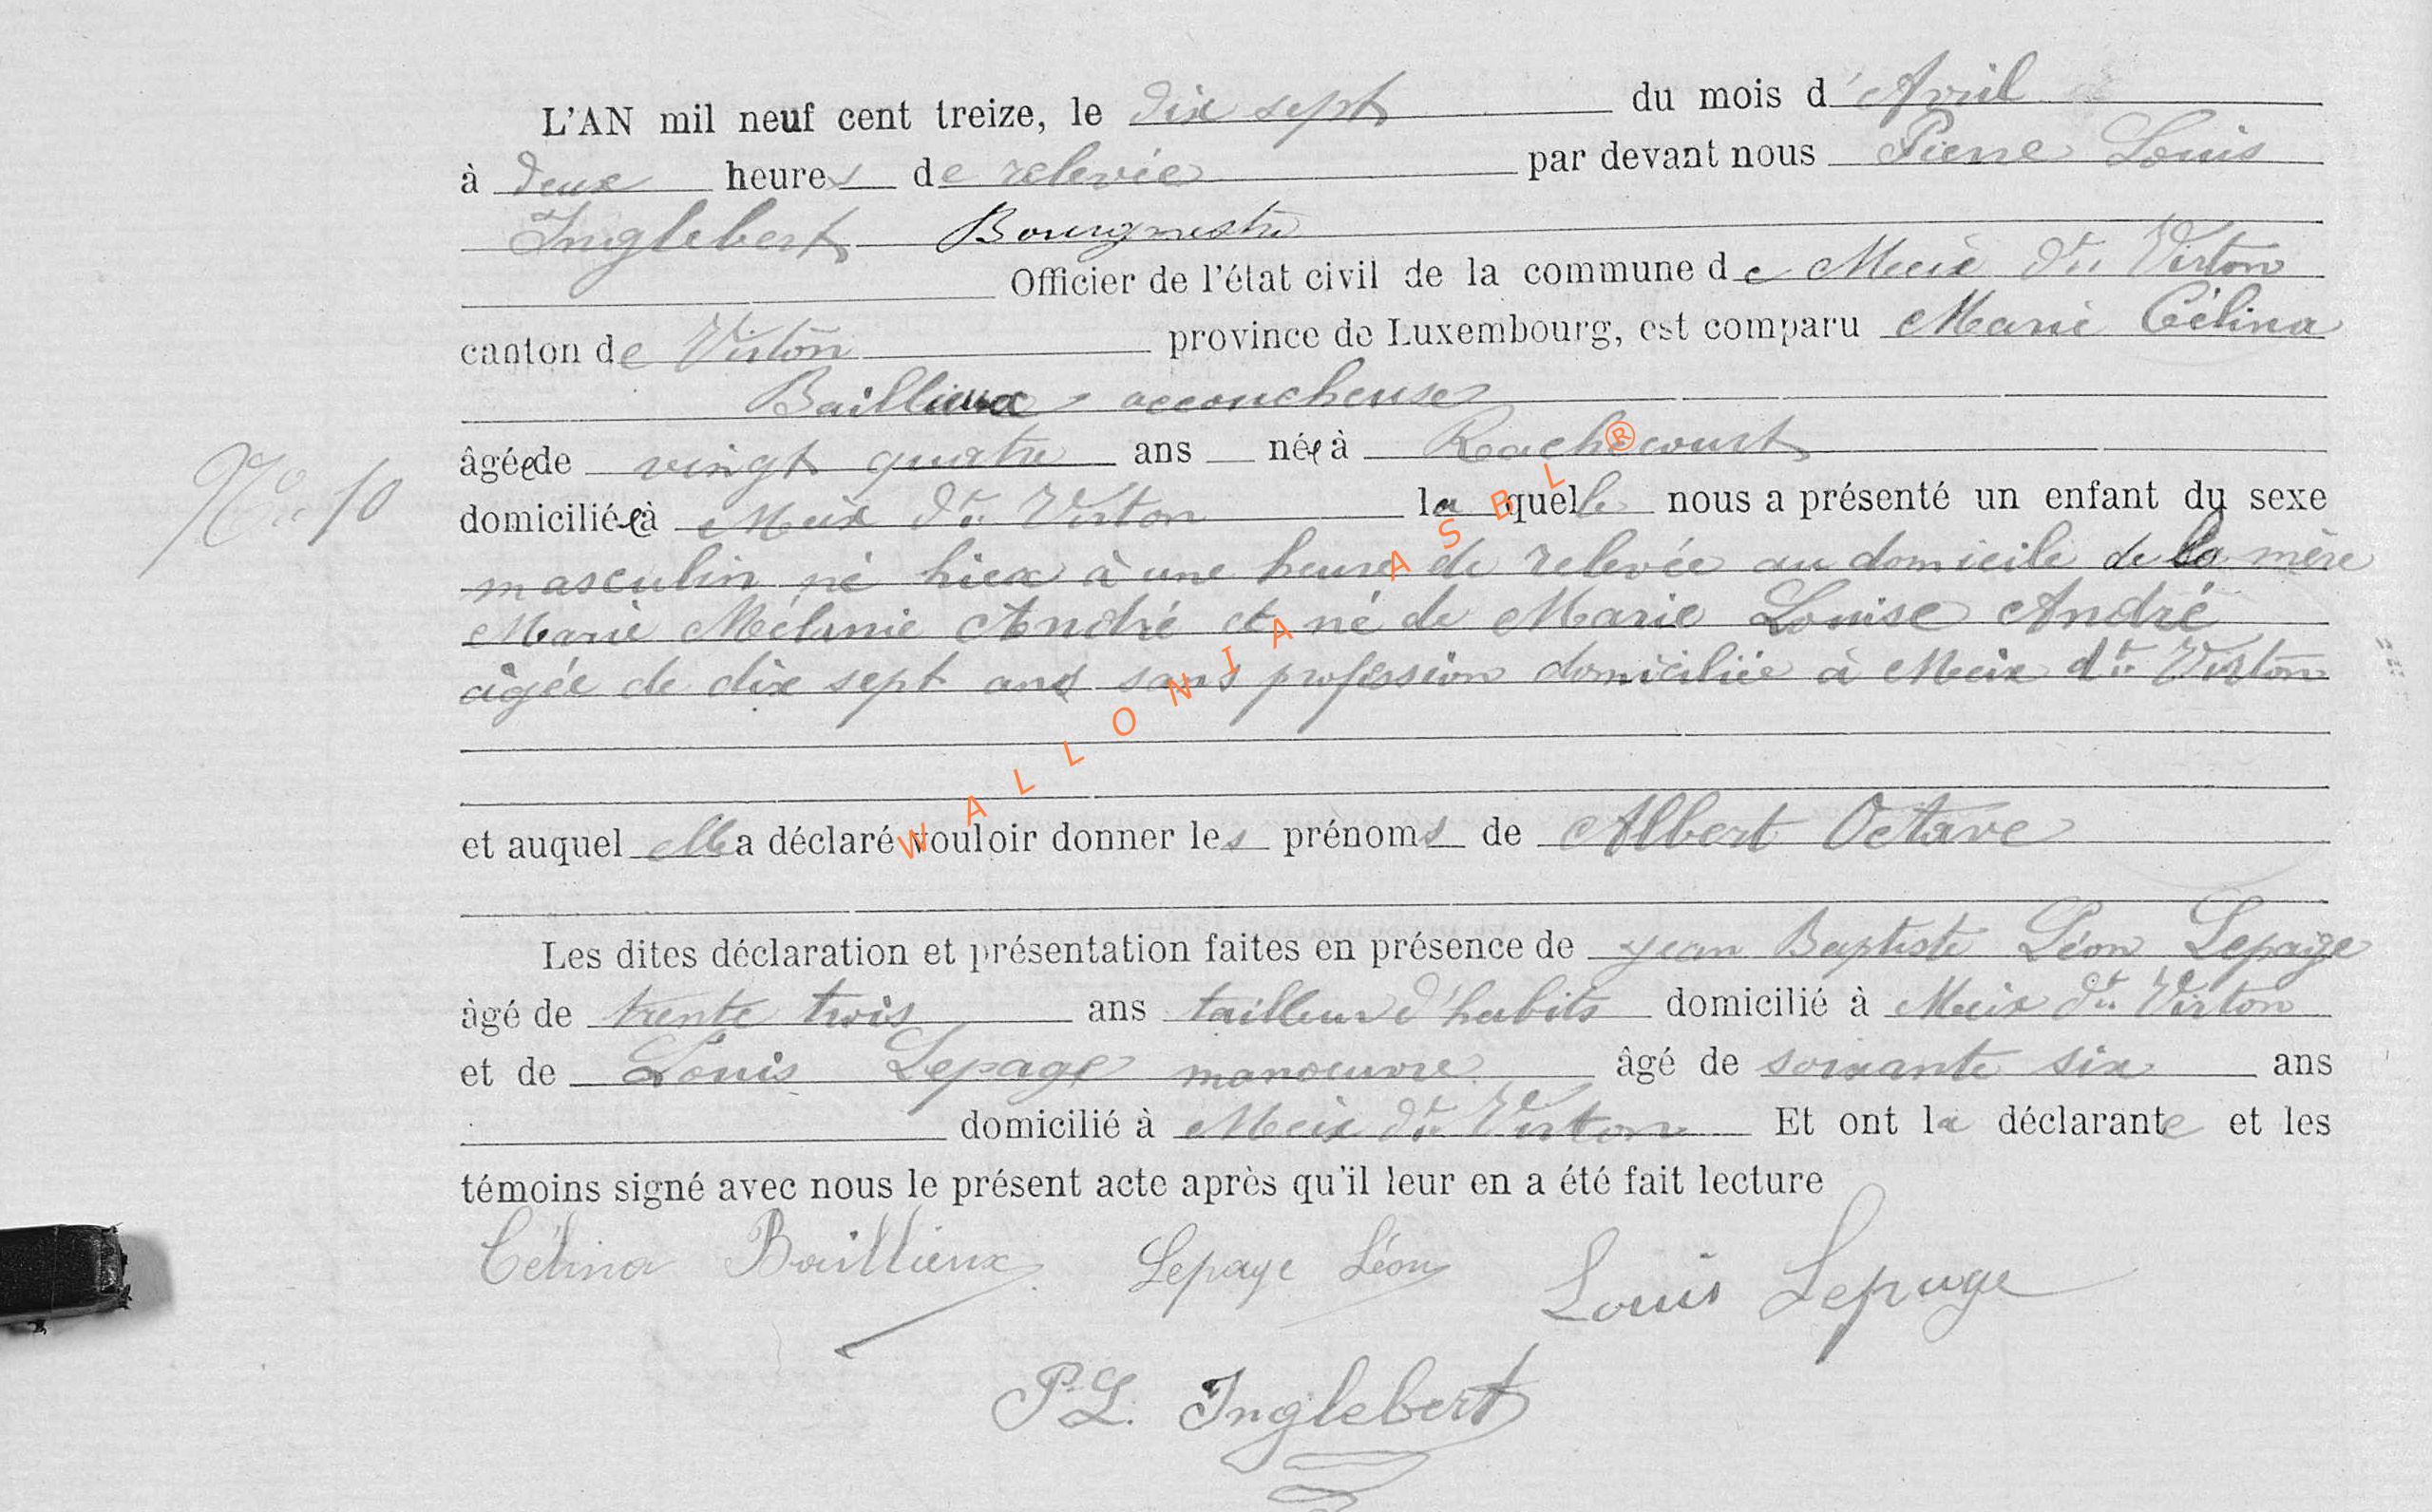 L'AN mil neuf cent treize, le dix sept du mois d'Avril
à deux heures de relevée par devant nous Pierre Louis
Inglebert Bourgmestre
Officier de l'état civil de la commune de Meix dt Virton
canton de Virton province de Luxembourg, est comparu Marie Célina
Baillieux accoucheuse
âgée de vingt quatre ans née à Rachecourt
N° 10
domiciliée à Meix dt Virton laquelle nous a présenté un enfant du sexe
masculin né hier à une heure de relevée au domicile de la mère
Marie Mélanie André et né de Marie Louise André
âgée de dix sept ans sans profession domiciliée à Meix dt Virton
et auquel elle a déclaré vouloir donner les prénoms de Albert Octave
Les dites déclaration et présentation faites en présence de Jean Baptiste Léon Lepage
âgé de trente trois ans tailleur d'habits domicilié à Meix dt Virton
et de Louis Lepage manoeuvre âgé de soixante six ans
domicilié à Meix dt Virton Et ont la déclarante et les
témoins signé avec nous le présent acte après qu'il leur en a été fait lecture
Célina Baillieux Lepage Léon Louis Lepage
P. L. Inglebert
WALLONIA ASBL ®